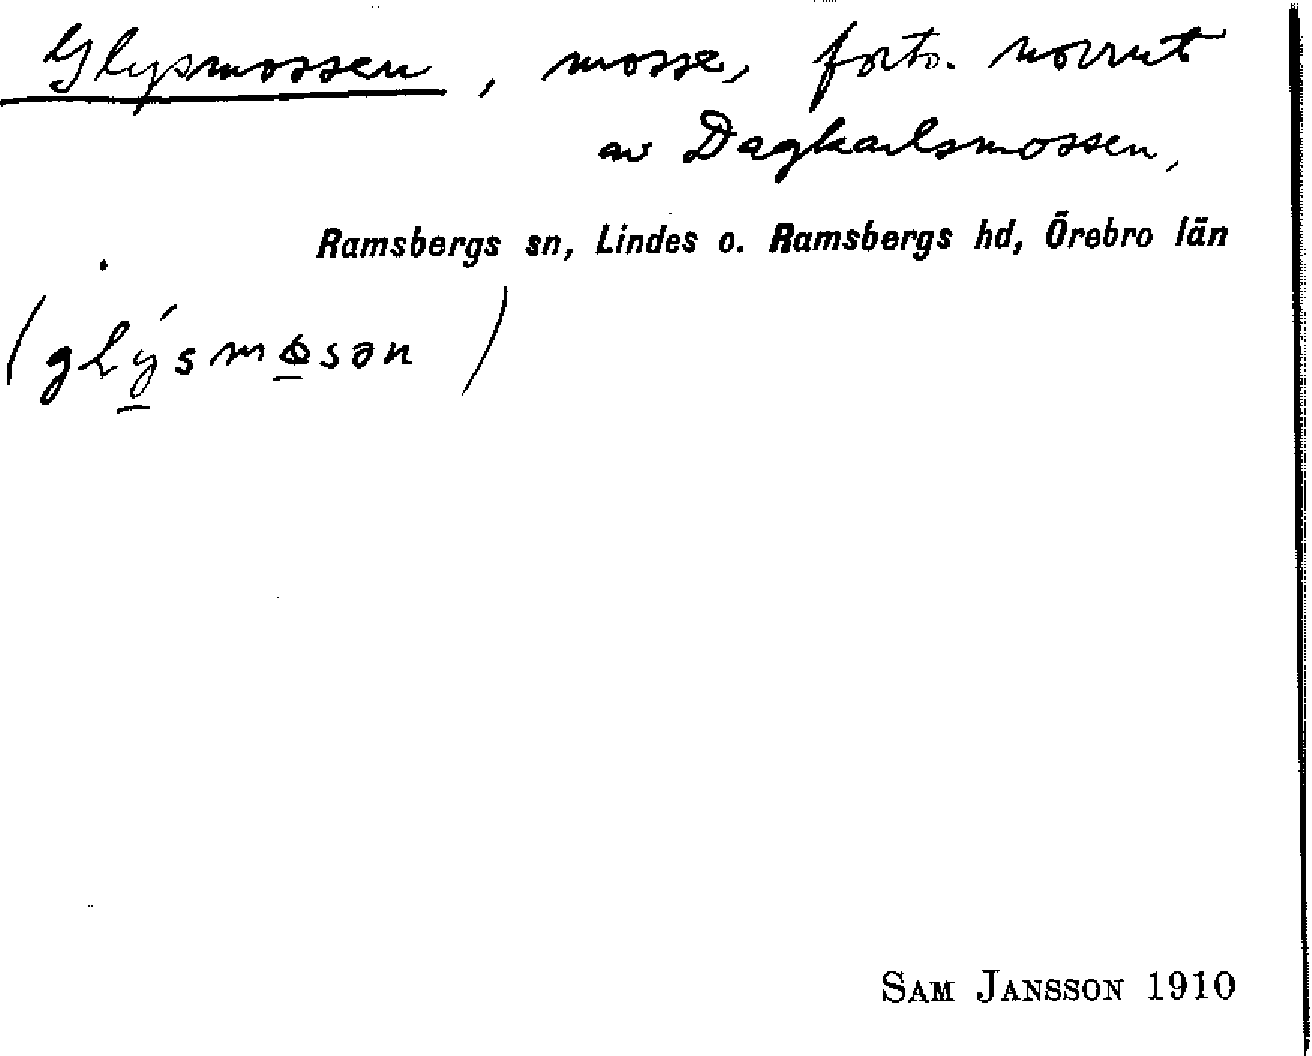 Glysmossen, mosse, forts. norrut
av Dagkarlsmossen,
Ramsbergs sn, Lindes o. Ramsbergs hd, Örebro län
SAM JANSSON 1910